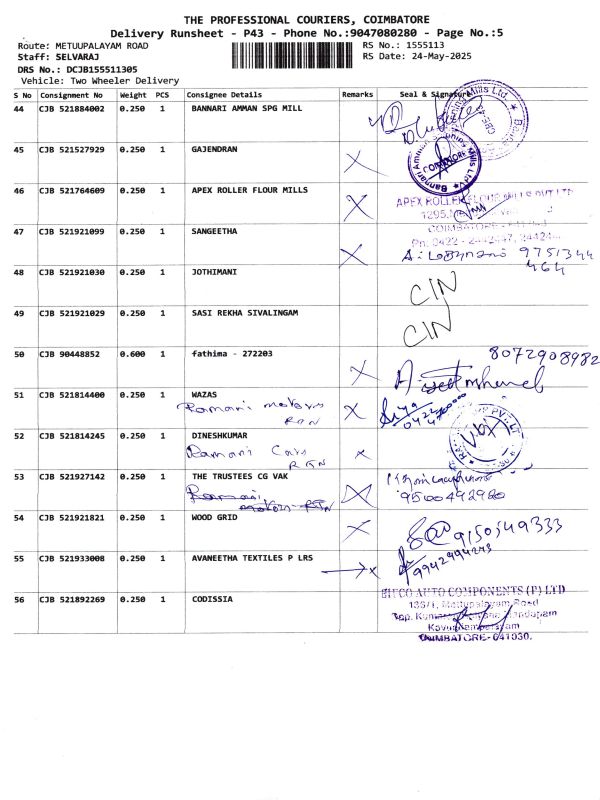 THE PROFESSIONAL COURIERS, COIMBATORE
Delivery Runsheet - P43 - Phone No.:9047080280 - Page No.:5
Route: METUUPALAYAM ROAD
RS No.: 1555113
Staff: SELVARAJ
RS Date: 24-May-2025
DRS No.: DCJB155511305
Vehicle: Two Wheeler Delivery
S No Consignment No Weight PCS Consignee Details Remarks Seal & Signature
44 CJB 521884002 0.250 1 BANNARI AMMAN SPG MILL
45 CJB 521527929 0.250 1 GAJENDRAN
46 CJB 521764609 0.250 1 APEX ROLLER FLOUR MILLS
APEX ROLLER FLOUR MILLS PVT LTD
COIMBATORE
47 CJB 521921099 0.250 1 SANGEETHA
9751344
464
48 CJB 521921030 0.250 1 JOTHIMANI
C/N
49 CJB 521921029 0.250 1 SASI REKHA SIVALINGAM
C/N
50 CJB 90448852 0.600 1 fathima - 272203
8072908982
51 CJB 521814400 0.250 1 WAZAS
Ramani motors
RTN
52 CJB 521814245 0.250 1 DINESHKUMAR
Ramani Cars
RTN
53 CJB 521927142 0.250 1 THE TRUSTEES CG VAK
9500492980
54 CJB 521921821 0.250 1 WOOD GRID
9150549333
55 CJB 521933008 0.250 1 AVANEETHA TEXTILES P LRS
9942994243
56 CJB 521892269 0.250 1 CODISSIA
AUTO COMPONENTS (P) LTD
Mettupalayam Road
COIMBATORE- 641030.